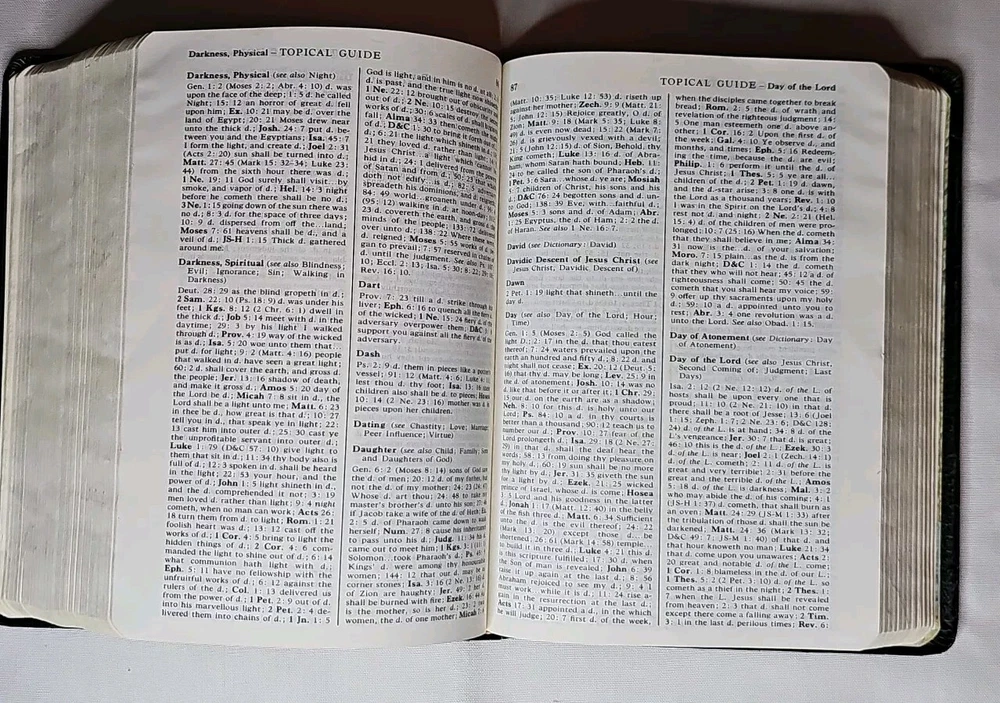 Darkness, Physical – TOPICAL GUIDE
Darkness, Physical (see also Night)
Gen. 1: 2 (Moses 2: 2; Abr. 4: 10) d. was
upon the face of the deep; 1: 5 d. he called
Night; 15: 12 an horror of great d. fell
upon him; Ex. 10: 21 may be d. over the
land of Egypt; 20: 21 Moses drew near
unto the thick d.; Josh. 24: 7 put d. be-
tween you and the Egyptians; Isa. 45: 7
I form the light, and create d.; Joel 2: 31
(Acts 2: 20) sun shall be turned into d.;
Matt. 27: 45 (Mark 15: 32-34; Luke 23:
44) from the sixth hour there was d.;
1 Ne. 19: 11 God surely shall visit...by
smoke, and vapor of d.; Hel. 14: 3 night
before he cometh there shall be no d.;
3 Ne. 1: 15 going down of the sun there was
no d.; 8: 3 d. for the space of three days;
10: 9 d. dispersed from off the...land;
Moses 7: 61 heavens shall be d., and a
veil of d.; JS-H 1: 15 Thick d. gathered
around me.
Darkness, Spiritual (see also Blindness;
Evil; Ignorance; Sin; Walking in
Darkness)
Deut. 28: 29 as the blind gropeth in d.;
2 Sam. 22: 10 (Ps. 18: 9) d. was under his
feet; 1 Kgs. 8: 12 (2 Chr. 6: 1) dwell in
the thick d.; Job 5: 14 meet with d. in the
daytime; 29: 3 by his light I walked
through d.; Prov. 4: 19 way of the wicked
is as d.; Isa. 5: 20 woe unto them that...
put d. for light; 9: 2 (Matt. 4: 16) people
that walked in d. have seen a great light;
60: 2 d. shall cover the earth, and gross d.
the people; Jer. 13: 16 shadow of death,
and make it gross d.; Amos 5: 20 day of
the Lord be d.; Micah 7: 8 sit in d., the
Lord shall be a light unto me; Matt. 6: 23
in thee be d., how great is that d.; 10: 27
tell you in d., that speak ye in light; 22:
13 cast him into outer d.; 25: 30 cast ye
the unprofitable servant into outer d.;
Luke 1: 79 (D&C 57: 10) give light to
them that sit in d.; 11: 34 thy body also is
full of d.; 12: 3 spoken in d. shall be heard
in the light; 22: 53 your hour, and the
power of d.; John 1: 5 light shineth in d.,
and the d. comprehended it not; 3: 19
men loved d. rather than light; 9: 4 night
cometh, when no man can work; Acts 26:
18 turn them from d. to light; Rom. 1: 21
foolish heart was d.; 13: 12 cast off the
works of d.; 1 Cor. 4: 5 bring to light the
hidden things of d.; 2 Cor. 4: 6 com-
manded the light to shine out of d.; 6: 14
what communion hath light with d.;
Eph. 5: 11 have no fellowship with the
unfruitful works of d.; 6: 12 against the
rulers of the d.; Col. 1: 13 delivered us
from the power of d.; 1 Pet. 2: 9 out of d.
into his marvellous light; 2 Pet. 2: 4 de-
livered them into chains of d.; 1 Jn. 1: 5
God is light, and in him is no d. at all;
d. is past, and the true light now shineth;
1 Ne. 22: 12 brought out of obscurity
d.; 2 Ne. 10: 15 destroy the
works of d.; 30: 6 scales of d.
fall; Alma 34: 33 then cometh the
of d.; D&C 1: 30 to bring it forth out of
d.; 6: 21 the light which shineth in d.;
21 they loved d. rather than light;
Jesus Christ...a light which
hid in d.; 24: 1 delivered from the powers
of Satan and from d.; 50: 23 that which
doth not edify is d.; 82: 5
spreadeth his dominions, and d. reigneth
84: 49 world...groaneth under
(95: 12) walking in d. at noon-day;
23 d. covereth the earth, and gross d. the
minds of the people; 133: 72 delivered
over unto d.; 138: 22 Where these were, d.
d. reigned; Moses 5: 55 works of d.
gan to prevail; 7: 57 reserved in chains of
d. until the judgment. See also
10; Eccl. 2: 13; Isa. 5: 30; 8: 22;
Rev. 16: 10.
Dart
Prov. 7: 23 till a d. strike through his
liver; Eph. 6: 16 to quench all the fiery d.
of the wicked; 1 Ne. 15: 24 fiery d. of the
adversary overpower them; D&C
support you against all the fiery d. of the
adversary.
Dash
Ps. 2: 9 d. them in pieces like a potter's
vessel; 91: 12 (Matt. 4: 6; Luke 4: 11)
lest thou d. thy foot; Isa. 13: 16
children also shall be d. to pieces; Hosea
10: 14 (2 Ne. 23: 16) mother was d. in
pieces upon her children.
Dating (see Chastity; Love; Marriage;
Peer Influence; Virtue)
Daughter (see also Child; Family; Sons
and Daughters of God)
Gen. 6: 2 (Moses 8: 14) sons of God saw
the d. of men; 20: 12 d. of my father, but
not the d. of my mother; 24: 23 (24: 47)
Whose d. art thou; 24: 48 to take my
master's brother's d. unto his son; 27: 46
if Jacob take a wife of the d. of Heth; Ex.
2: 5 d. of Pharaoh came down to wash
herself; Num. 27: 8 cause his inheritance
to pass unto his d.; Judg. 11: 34 his d.
came out to meet him; 1 Kgs. 3: 1
Solomon...took Pharaoh's d.; Ps. 45: 9
Kings' d. were among thy honourable
women; 144: 12 that our d. may be as
corner stones; Isa. 3: 16 (2 Ne. 13: 16) d.
of Zion are haughty; Jer. 49: 2 her d.
shall be burned with fire; Ezek. 16: 44 As
is the mother, so is her d.; 23: 2 two
women, the d. of one mother; Micah
87 TOPICAL GUIDE – Day of the Lord
(Matt. 10: 35; Luke 12: 53) d. riseth up
against her mother; Zech. 9: 9 (Matt. 21:
5; John 12: 15) Rejoice greatly, O d. of
Zion; Matt. 9: 18 (Mark 5: 35; Luke 8:
d. is even now dead; 15: 22 (Mark 7:
26) d. is grievously vexed with a devil;
21: 5 (John 12: 15) d. of Sion, Behold, thy
King cometh; Luke 13: 16 d. of Abra-
ham, whom Satan hath bound; Heb. 11:
24 to be called the son of Pharaoh's d.;
1 Pet. 3: 6 Sara...whose d. ye are; Mosiah
5: 7 children of Christ, his sons and his
d.; D&C 76: 24 begotten sons and d. un-
to God; 138: 39 Eve, with...faithful d.;
Moses 5: 3 sons and d. of Adam; Abr.
1: 25 Egyptus, the d. of Ham; 2: 2 the d.
of Haran. See also 1 Ne. 16: 7.
David (see Dictionary: David)
Davidic Descent of Jesus Christ (see
Jesus Christ, Davidic Descent of)
Dawn
2 Pet. 1: 19 light that shineth...until the
day d.
Day (see also Day of the Lord; Hour;
Time)
Gen. 1: 5 (Moses 2: 5) God called the
light D.; 2: 17 in the d. that thou eatest
thereof; 7: 24 waters prevailed upon the
earth an hundred and fifty d.; 8: 22 d. and
night shall not cease; Ex. 20: 12 (Deut. 5:
16) that thy d. may be long; Lev. 25: 9 in
the d. of atonement; Josh. 10: 14 was no
d. like that before it or after it; 1 Chr. 29:
15 our d. on the earth are as a shadow;
Neh. 8: 10 for this d. is holy unto our
Lord; Ps. 84: 10 a d. in thy courts is
better than a thousand; 90: 12 teach us to
number our d.; Prov. 10: 27 fear of the
Lord prolongeth d.; Isa. 29: 18 (2 Ne. 27:
29) in that d. shall the deaf hear the
words; 58: 13 from doing thy pleasure on
my holy d.; 60: 19 sun shall be no more
thy light by d.; Jer. 31: 35 giveth the sun
for a light by d.; Ezek. 21: 25 wicked
prince of Israel, whose d. is come; Hosea
3: 5 Lord and his goodness in the latter
d.; Jonah 1: 17 (Matt. 12: 40) in the belly
of the fish three d.; Matt. 6: 34 Sufficient
unto the d. is the evil thereof; 24: 22
(Mark 13: 20) except those d....be
shortened; 26: 61 (Mark 14: 58) temple...
to build it in three d.; Luke 4: 21 this d.
is this scripture fulfilled; 17: 30 d. when
the Son of man is revealed; John 6: 39
raise it up again at the last d.; 8: 56
Abraham rejoiced to see my d.; 9: 4 I
must work...while it is d.; 11: 24 rise a-
gain in the resurrection at the last d.;
Acts 17: 31 appointed a d., in the which
he will judge; 20: 7 first d. of the week,
when the disciples came together to break
bread; Rom. 2: 5 the d. of wrath and
revelation of the righteous judgment; 14:
5 One man esteemeth one d. above an-
other; 1 Cor. 16: 2 Upon the first d. of
the week; Gal. 4: 10 Ye observe d., and
months, and times; Eph. 5: 16 Redeem-
ing the time, because the d. are evil;
Philip. 1: 6 perform it until the d. of
Jesus Christ; 1 Thes. 5: 5 ye are all...
children of the d.; 2 Pet. 1: 19 d. dawn,
and the d.-star arise; 3: 8 one d. is with
the Lord as a thousand years; Rev. 1: 10
I was in the Spirit on the Lord's d.; 4: 8
rest not d. and night; 2 Ne. 2: 21 (Hel.
15: 4) d. of the children of men were pro-
longed; 10: 7 (25: 16) When the d. cometh
that they shall believe in me; Alma 34:
31 now is the...d. of your salvation;
Moro. 7: 15 plain...as the d. is from the
dark night; D&C 1: 14 the d. cometh
that they who will not hear; 45: 12 a d. of
righteousness shall come; 50: 45 the d.
cometh that you shall hear my voice; 59:
9 offer up thy sacraments upon my holy
d.; 59: 10 a d. appointed unto you to
rest; Abr. 3: 4 one revolution was a d.
unto the Lord. See also Obad. 1: 15.
Day of Atonement (see Dictionary: Day
of Atonement)
Day of the Lord (see also Jesus Christ,
Second Coming of; Judgment; Last
Days)
Isa. 2: 12 (2 Ne. 12: 12) d. of the L. of
hosts shall be upon every one that is
proud; 11: 10 (2 Ne. 21: 10) in that d.
there shall be a root of Jesse; 13: 6 (Joel
1: 15; Zeph. 1: 7; 2 Ne. 23: 6; D&C 128:
24) d. of the L. is at hand; 34: 8 d. of the
L.'s vengeance; Jer. 30: 7 that d. is great;
46: 10 this is the d. of the L.; Ezek. 30: 3
d. of the L. is near; Joel 2: 1 (Zech. 14: 1)
d. of the L. cometh; 2: 11 d. of the L. is
great and very terrible; 2: 31 before the
great and the terrible d. of the L.; Amos
5: 18 d. of the L. is darkness; Mal. 3: 2
who may abide the d. of his coming; 4: 1
(JS-H 1: 37) d. cometh, that shall burn as
an oven; Matt. 24: 29 (JS-M 1: 33) after
the tribulation of those d. shall the sun be
darkened; Matt. 24: 36 (Mark 13: 32;
D&C 49: 7; JS-M 1: 40) of that d. and
that hour knoweth no man; Luke 21: 34
that d. come upon you unawares; Acts 2:
20 great and notable d. of the L. come;
1 Cor. 1: 8 blameless in the d. of our L.;
1 Thes. 5: 2 (2 Pet. 3: 10) d. of the L. so
cometh as a thief in the night; 2 Thes. 1:
7 when the L. Jesus shall be revealed
from heaven; 2: 3 that d. shall not come
except there come a falling away; 2 Tim.
3: 1 in the last d. perilous times; Rev. 6: